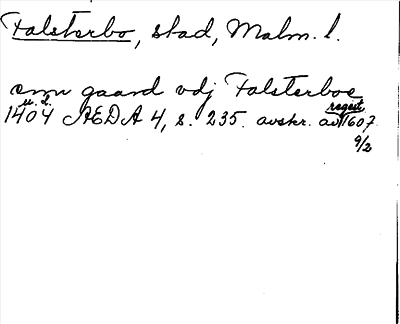 Falsterbo, stad, Malm. l.
enn gaard vdj Falsterboe
u. d. regest
1404 AEDA 4, s. 235. avskr. av 1607.
9/2